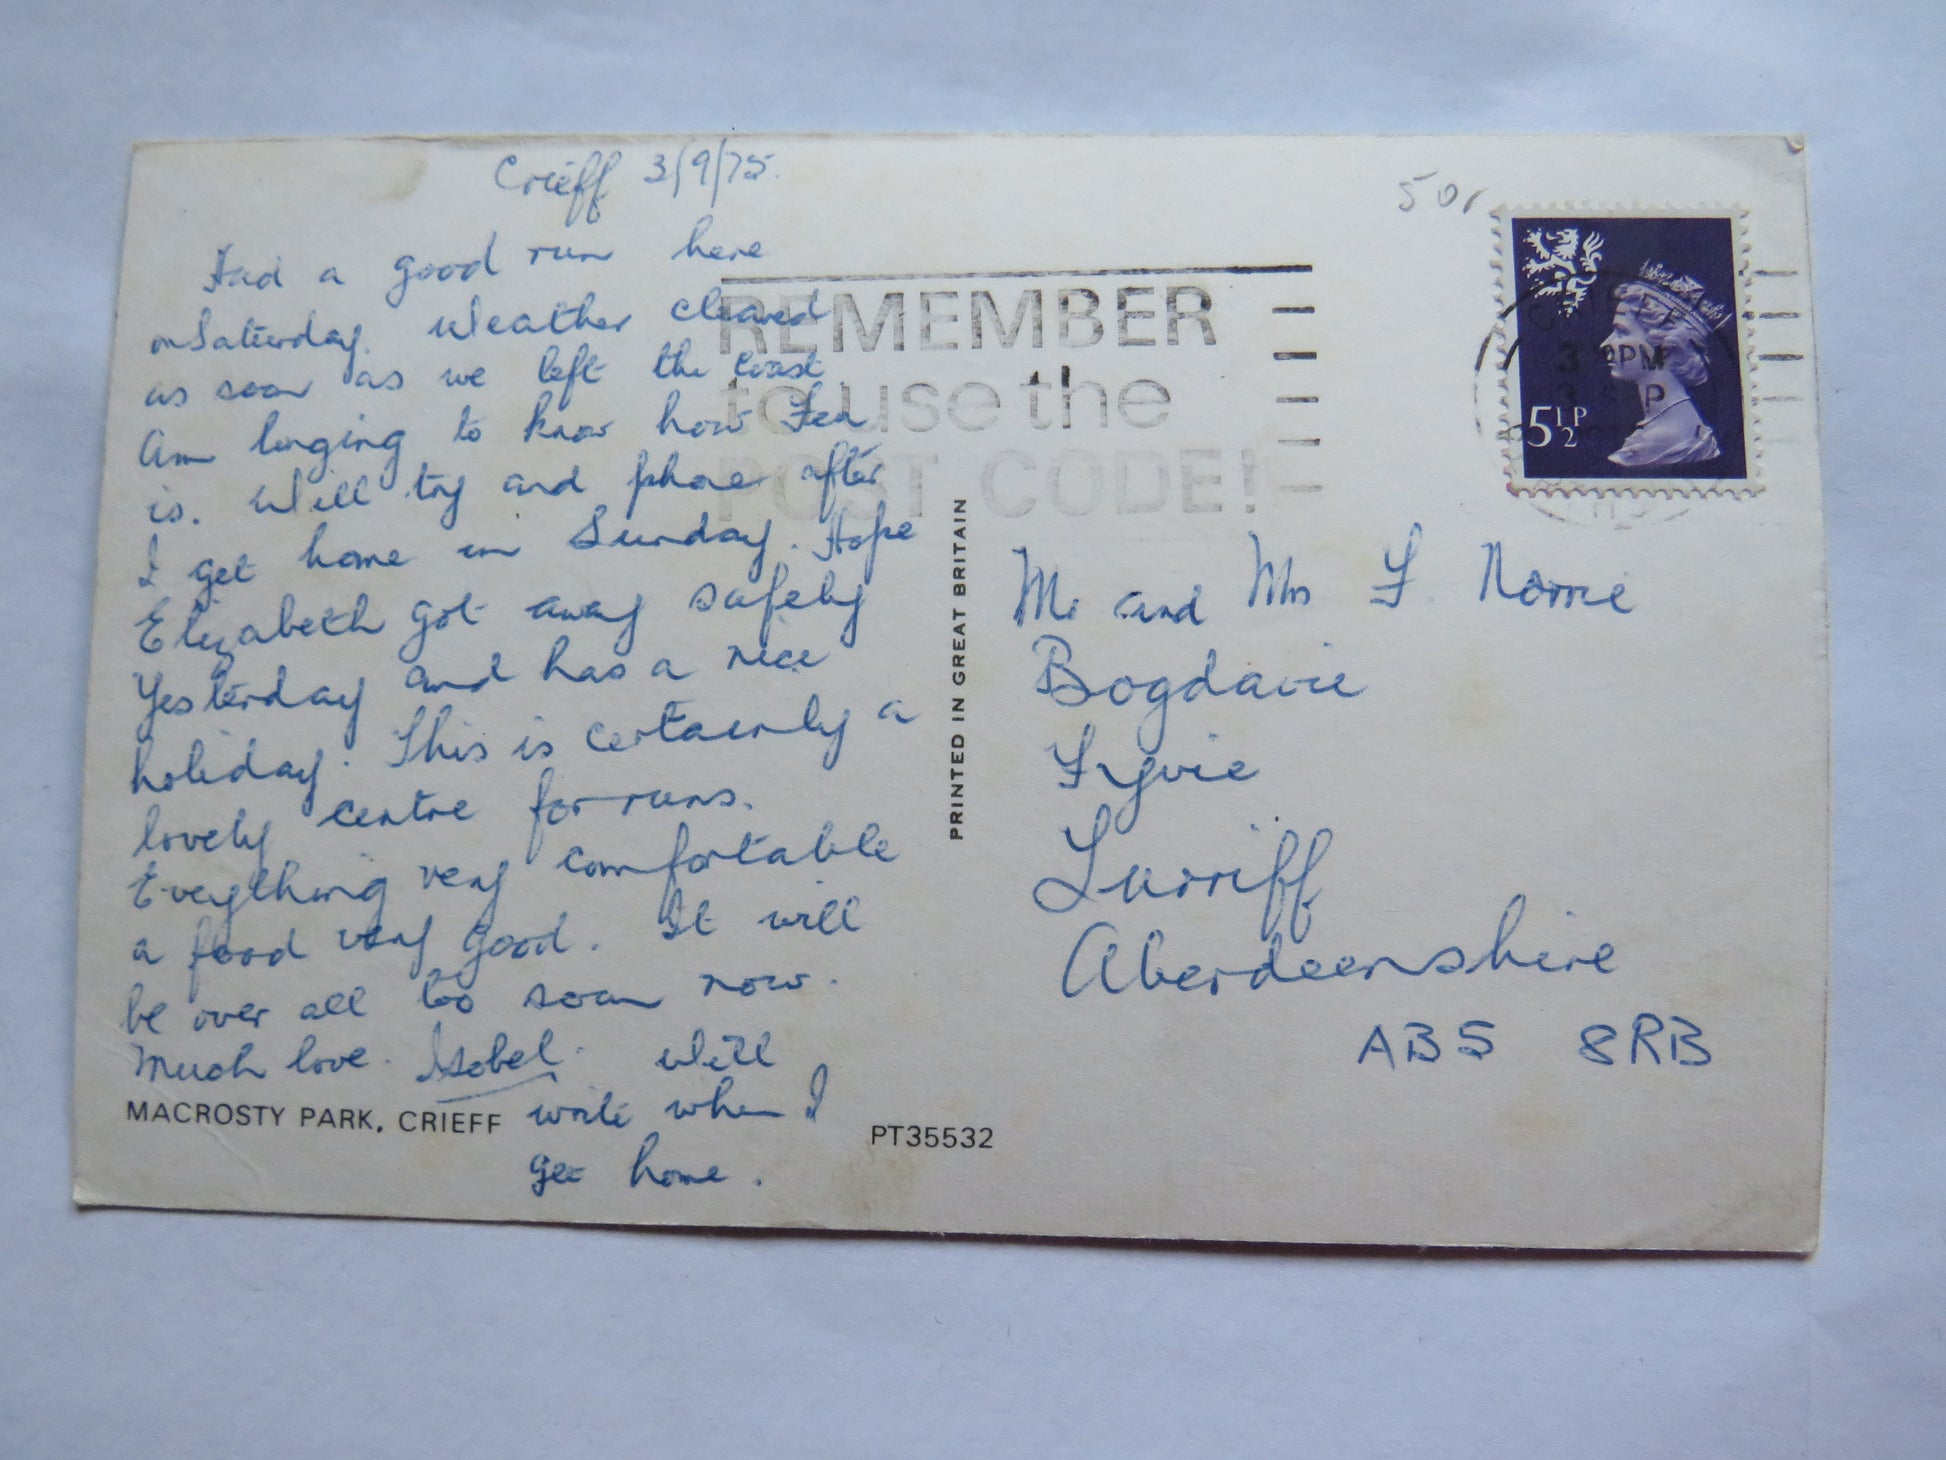 Crieff 3/9/75.
Had a good run here
on Saturday. Weather cleared
as soon as we left the coast
Am longing to know how Fea
is. Will try and phone after
I get home on Sunday. Hope
Elizabeth got away safely
Yesterday and has a nice
holiday. This is certainly a
lovely centre for runs.
Everything very comfortable
a food very good. It will
be over all too soon now.
Much love. Isobel. Will
write when I
get home.
MACROSTY PARK, CRIEFF
PT35532
PRINTED IN GREAT BRITAIN
REMEMBER
to use the
POST CODE!
50
5½P
CRIEFF
3 PM
Mr and Mrs F. Norrie
Bogdavie
Fyvie
Turriff
Aberdeenshire
AB5 8RB